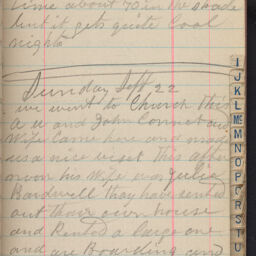 time about 70 in the shade
but it gets quite Cool
nights
Sunday Sept 22
we went to Church this
a m and John Connet and
Wife Came here and mad
us a nice visit this after
noon his Wife was Julia
Bardwell they have rented
out thair own house
and Rented a large one
and are Boarding and
I
J
K
L
Mc
M
N
O
P
Q
R
S
T
U